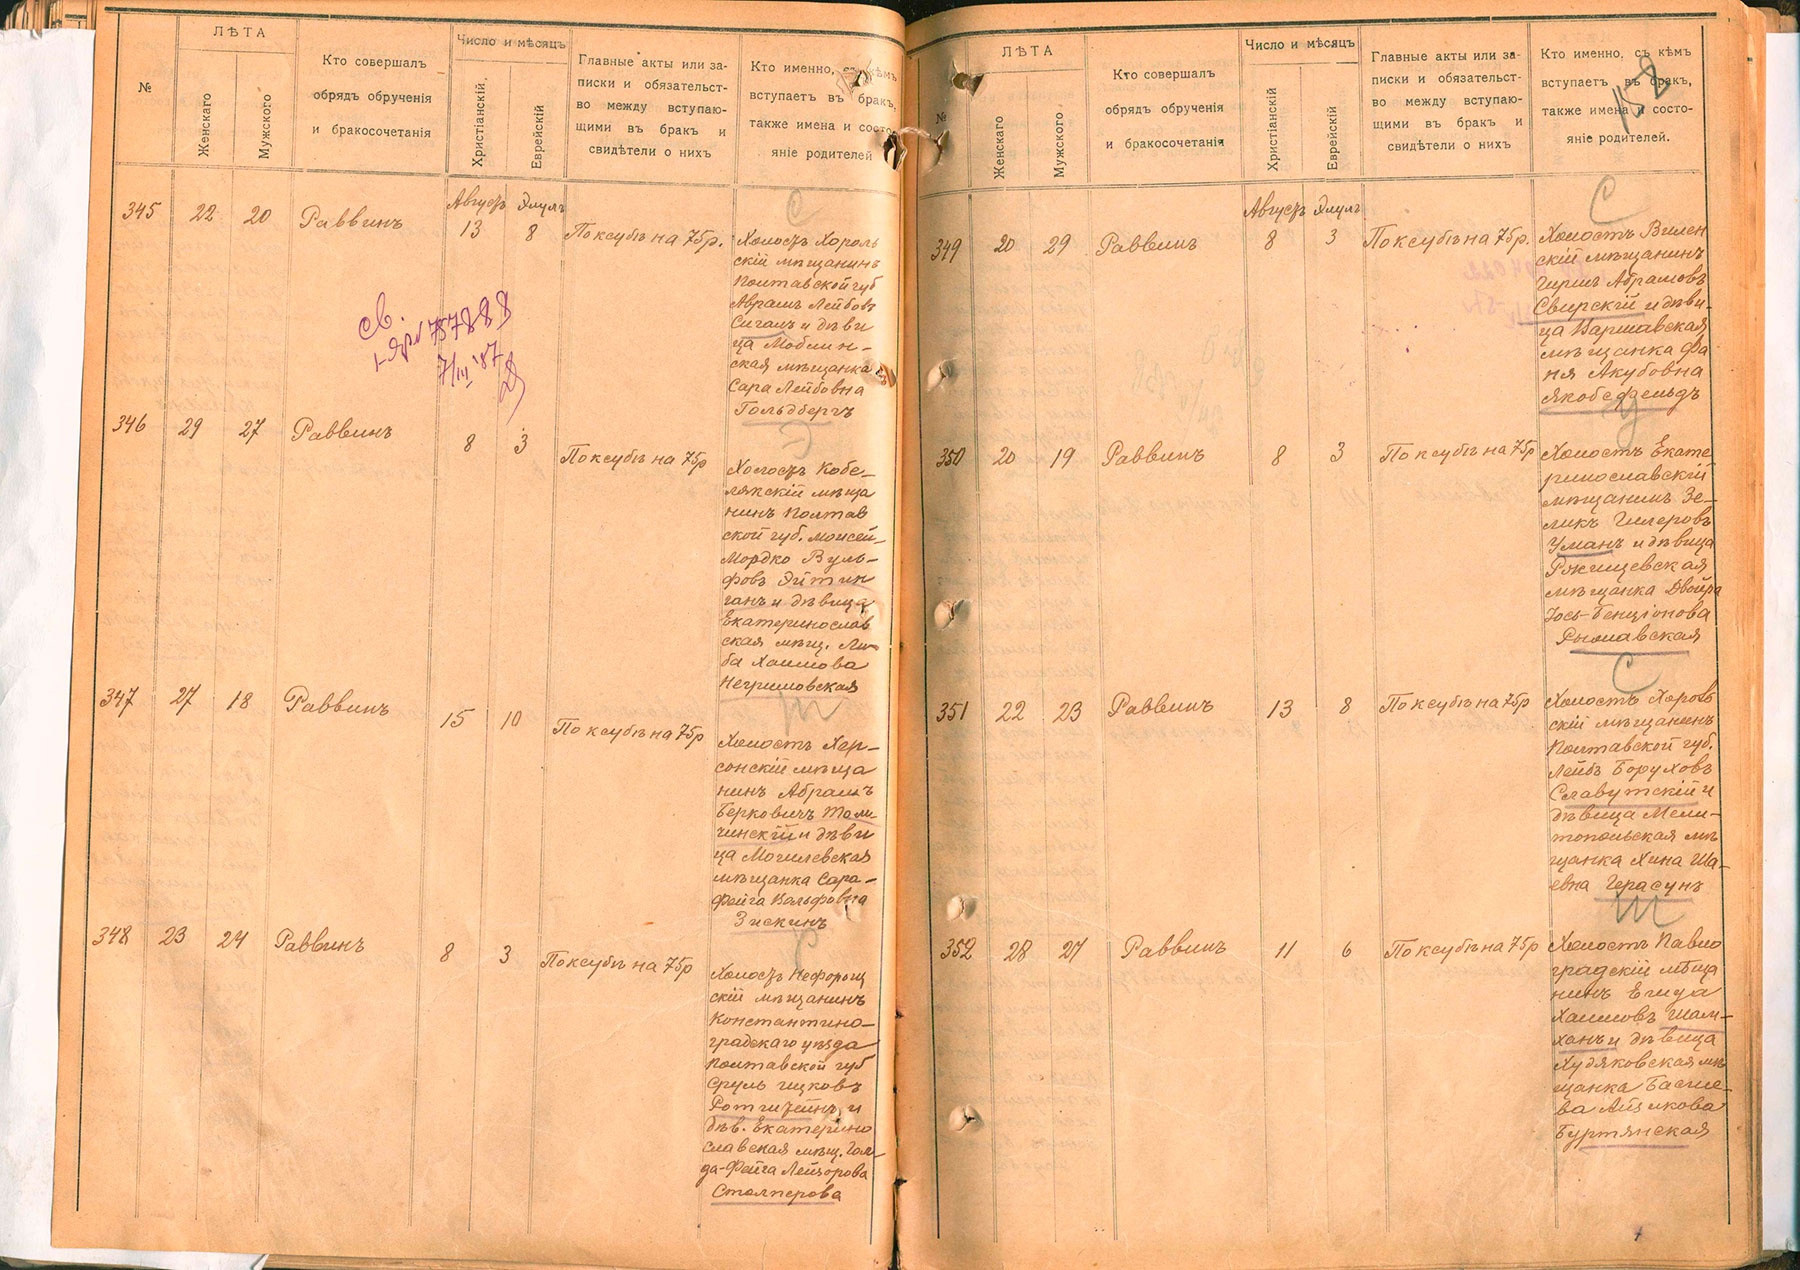 №
ЛѢТА
Женскаго
Мужского
Кто совершалъ
обрядъ обрученія
и бракосочетанія
Число и мѣсяцъ
Христіанскій.
Еврейскій
Главные акты или за-
писки и обязательст-
во между вступаю-
щими въ бракъ и
свидѣтели о нихъ
Кто именно, съ кѣмъ
вступаетъ въ бракъ,
также имена и состо-
яніе родителей
Августъ Элулъ
345 22 20 Раввинъ 13 8 По ксубѣ на 75р.
С
Холостъ Хороль
скій мѣщанинъ
Полтавской губ
Аврамъ Лейбовъ
Сигалъ и дѣви
ца
ская мѣщанка
Сара Лейбовна
Гольдбергъ
св.
787888
7/III 87
346 29 27 Раввинъ 8 3 По ксубѣ на 75р
Э
Холостъ Кобе-
лякскій мѣща
нинъ Полтав
ской губ. Моисей-
Мордко Вуль-
фовъ Эйтин
ганъ и дѣвица
Екатеринослав
ская мѣщ. Лю-
ба Хаимова
Негримовская
347 27 18 Раввинъ 15 10 По ксубѣ на 75р
Т
Холостъ Хер-
сонскій мѣща
нинъ Абрамъ
Берковичъ Толи
чинскій и дѣви
ца Могилевская
мѣщанка Сара-
Фейга Вольфовна
Зискинъ
348 23 24 Раввинъ 8 3 По ксубѣ на 75р
Р
Холостъ Нефорощ
скій мѣщанинъ
Константино-
градскаго уѣзда
Полтавской губ
Сруль Ицковъ
Ротштейнъ и
дѣв. Екатерино
славская мѣщ. Гол-
да-Фейга Лейзорова
Столперова
№
ЛѢТА
Женскаго
Мужского
Кто совершалъ
обрядъ обрученія
и бракосочетанія
Число и мѣсяцъ
Христіанскій
Еврейскій
Главные акты или за-
писки и обязательст-
во между вступаю-
щими въ бракъ и
свидѣтели о нихъ
Кто именно, съ кѣмъ
вступаетъ въ бракъ,
также имена и состо-
яніе родителей.
158
Августъ Элулъ
349 20 29 Раввинъ 8 3 По ксубѣ на 75р.
С
Холостъ Вилен
скій мѣщанинъ
Гиршъ Абрамовъ
Свирскій и дѣви-
ца Варшавская
мѣщанка Фа
ня Акубовна
Якобсфельдъ
350 20 19 Раввинъ 8 3 По ксубѣ на 75р
У
Холостъ Екате
ринославскій
мѣщанинъ Зе-
ликъ Гилеровъ
Уманъ и дѣвица
Рокищевская
мѣщанка Двойра
Іось-Бенціонова
Рымавская
351 22 23 Раввинъ 13 8 По ксубѣ на 75р
С
Холостъ Хороль
скій мѣщанинъ
Полтавской губ.
Лейбъ Боруховъ
Славутскій и
дѣвица Мели-
топольская мѣ
щанка Хина Ша-
евна Герасунъ
352 28 27 Раввинъ 11 6 По ксубѣ на 75р
Ш
Холостъ Павло
градскій мѣща
нинъ Егуда
Хаимовъ Шам-
ханъ и дѣвица
Худяковская мѣ
щанка Басше-
ва Айзикова
Буртянская